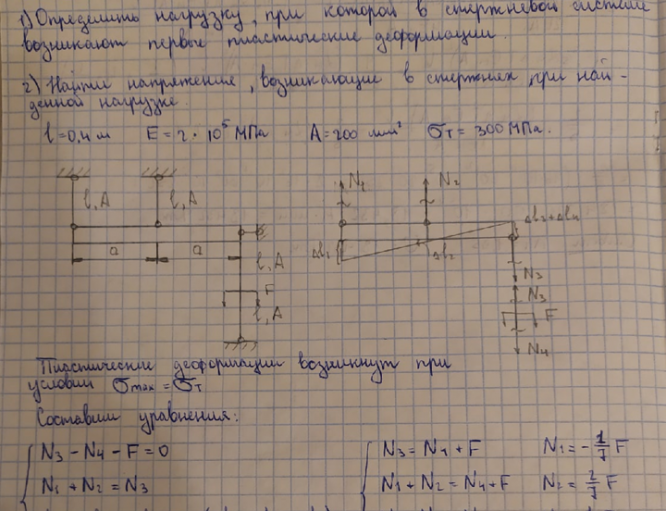 1) Определить нагрузку, при которой в стержневой системе
возникают первые пластические деформации.
2) Найти напряжение, возникающие в стержнях при най-
денной нагрузке.
l = 0,4 м E = 2 · 10⁵ МПа A = 200 мм² σт = 300 МПа.
l, A l, A N₁ N₂
a a l, A Δl₁ Δl₂ Δl₃+Δl₄
F l, A N₃
N₃
F
N₄
Пластические деформации возникнут при
условии σmax = σт
Составим уравнения:
N₃ - N₄ - F = 0 N₃ = N₄ + F N₁ = - 1/7 F
N₁ + N₂ = N₃ N₁ + N₂ = N₄ + F N₂ = 2/7 F